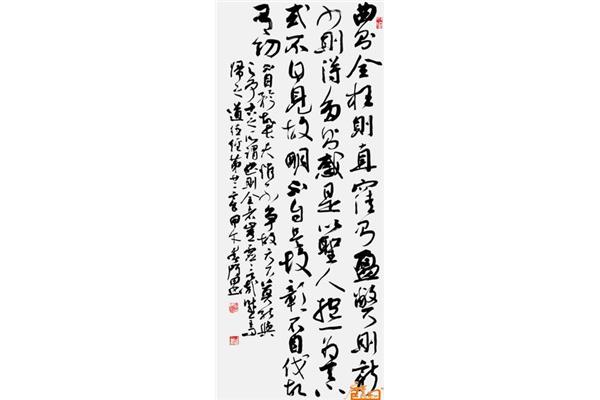 曲則全枉則直窪乃盈弊則新
少則得多則惑是以聖人抱一為天下
式不自見故明不自是故彰不自伐故
有功
不自矜故長夫惟不爭故天下莫能與
之爭古之所謂曲則全者豈虛言哉誠全而
歸之道德經第廿二章甲午